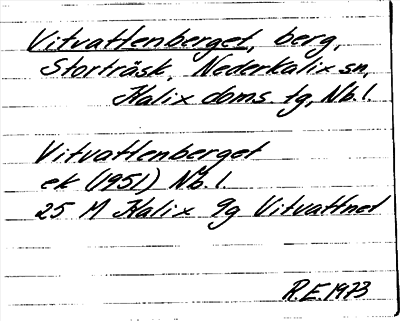 Vitvattenberget, berg,
Storträsk, Nederkalix sn,
Kalix doms. tg, Nb. l.
Vitvattenberget
ek (1951) Nb. l.
25 M Kalix 9g Vitvattnet
R.E. 1973